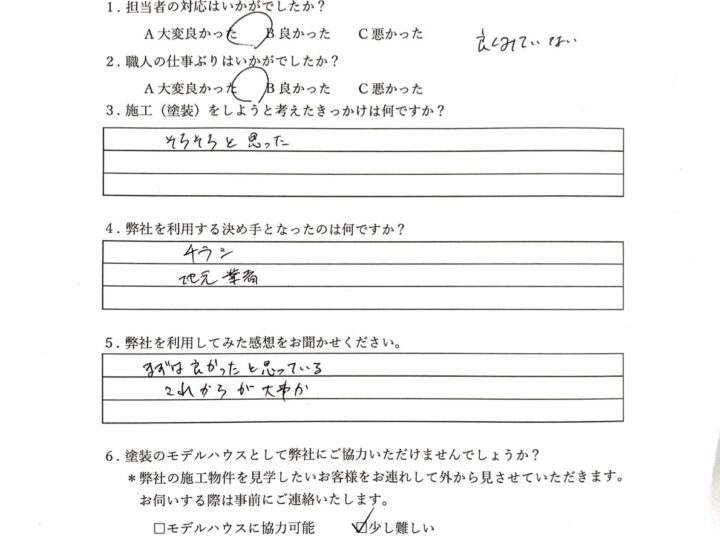 1．担当者の対応はいかがでしたか？
A 大変良かった　B 良かった　C 悪かった
良くみていない
2．職人の仕事ぶりはいかがでしたか？
A 大変良かった　B 良かった　C 悪かった
3．施工（塗装）をしようと考えたきっかけは何ですか？
そろそろと思った
4．弊社を利用する決め手となったのは何ですか？
チラシ
地元業者
5．弊社を利用してみた感想をお聞かせください。
まずは良かったと思っている
これからが大事か
6．塗装のモデルハウスとして弊社にご協力いただけませんでしょうか？
＊弊社の施工物件を見学したいお客様をお連れして外から見させていただきます。
お伺いする際は事前にご連絡いたします。
□モデルハウスに協力可能　☑少し難しい